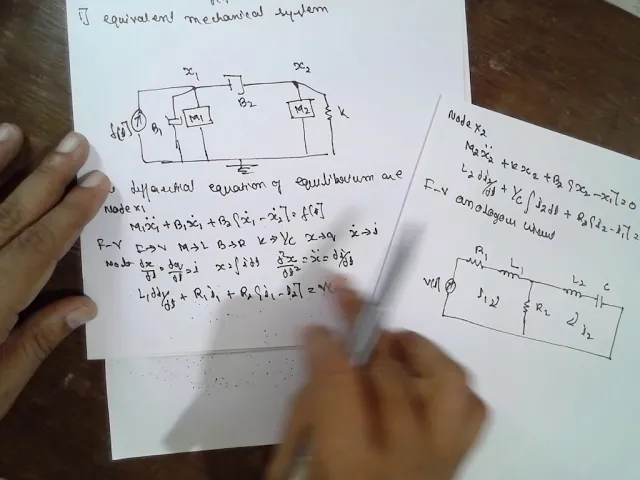 1] equivalent mechanical system
x1
x2
B2
f(t)
B1
M1
M2
K
differential equation of equilibrium are
Node x1
M1ẍ1 + B1ẋ1 + B2[ẋ1 - ẋ2] = f(t)
F-V F→V M→L B→R K→1/C x→q ẋ→i
dx/dt = dq/dt = i x = ∫idt d²x/dt² = ẍ = di/dt
L1di1/dt + R1i1 + R2[i1 - i2] =
Node x2
M2ẍ2 + Kx2 + B2[ẋ2 - ẋ1] = 0
L2di2/dt + 1/C∫i2dt + R2[i2 - i1] =
F-V analogous circuit
R1
L1
L2
C
v(t)
i1
R2
i2